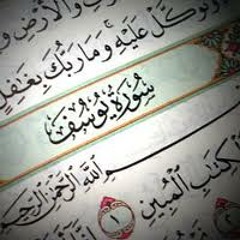 وَالْأَرْضِ
وَتَوَكَّلْ عَلَيْهِ ۚ وَمَا رَبُّكَ بِغَٰفِلٍ
سُورَةُ يُوسُفَ
بِسْمِ ٱللَّهِ ٱلرَّحْمَٰنِ ٱلرَّحِيمِ
ٱلْكِتَٰبِ ٱلْمُبِينِ ١
٢